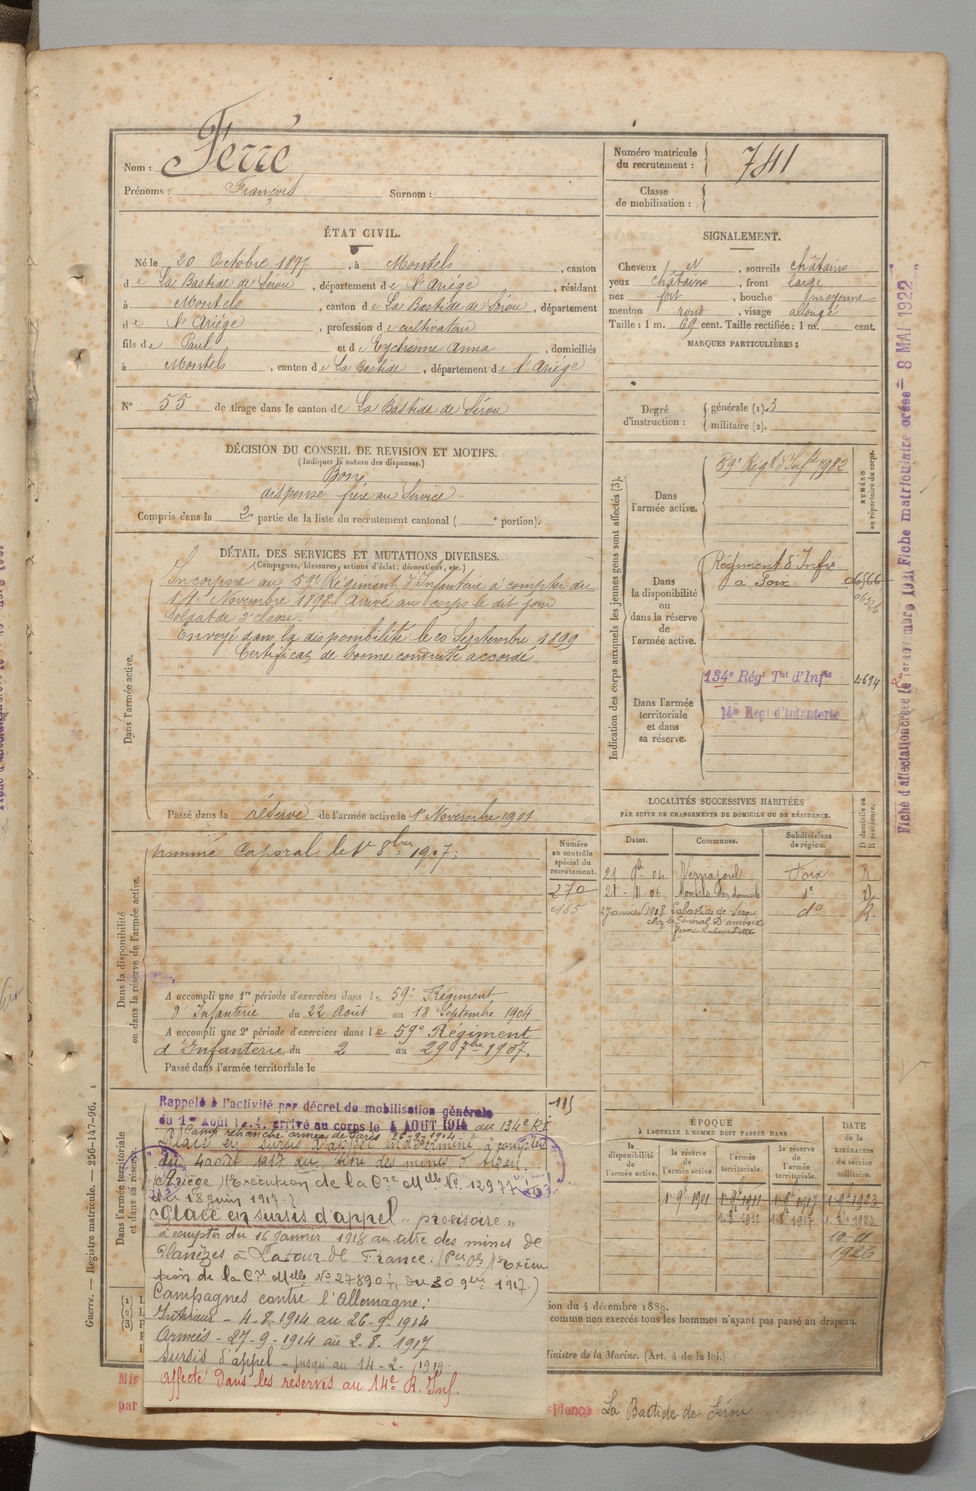 Nom : Ferré
Prénoms : François Surnom :
Numéro matricule du recrutement : 741
Classe de mobilisation :
ÉTAT CIVIL.
Né le 20 Octobre 1877, à Montels, canton
de La Bastide de Sérou, département de l'Ariège, résidant
à Montels, canton de La Bastide de Sérou, département
de l'Ariège, profession de cultivateur
fils de Paul et de Eychenne Anna, domiciliés
à Montels, canton de La Bastide, département de l'Ariège
N° 55 de tirage dans le canton de La Bastide de Sérou
SIGNALEMENT.
Cheveux, sourcils châtains
yeux châtains, front large
nez fort, bouche moyenne
menton rond, visage allongé
Taille : 1 m. 69 cent. Taille rectifiée : 1 m. cent.
MARQUES PARTICULIÈRES :
Degré d'instruction : générale (1). 3
militaire (2).
DÉCISION DU CONSEIL DE REVISION ET MOTIFS.
(Indiquer la nature des dispenses.)
Bon
dispensé frère au Service
Compris dans la 2e partie de la liste du recrutement cantonal ( e portion).
DÉTAIL DES SERVICES ET MUTATIONS DIVERSES.
(Campagnes, blessures, actions d'éclat, décorations, etc.)
Dans l'armée active.
Incorporé au 59e Régiment d'Infanterie à compter du
14 Novembre 1898. Arrivé au corps le dit jour
soldat de 2e classe.
Envoyé dans la disponibilité le 20 Septembre 1899
Certificat de bonne conduite accordé
Passé dans la réserve de l'armée active le 1er Novembre 1901.
Indication des corps auxquels les jeunes gens sont affectés (3).
NUMÉRO au répertoire du corps.
Dans l'armée active.
59e Régt d'Inf 1982
Dans la disponibilité ou dans la réserve de l'armée active.
Régiment d'Infie
à Foix
06566
06326
Dans l'armée territoriale et dans sa réserve.
134e Régt Tal d'Infie 4694
14e Régt d'Infanterie
LOCALITÉS SUCCESSIVES HABITÉES
PAR SUITE DE CHANGEMENTS DE DOMICILE OU DE RÉSIDENCE.
Dates. Communes. Subdivisions de région. D domicile ou R résidence.
Vernajoul Foix R
21 - 11 - 06. Montels son domicile do D
27 janvier 1908 Labastide de Sérou do R.
Dans la disponibilité ou dans la réserve de l'armée active.
nommé Caporal le 1er 8bre 1907.
Numéro au contrôle spécial du recrutement.
270
465
A accompli une 1re période d'exercices dans le 59e Régiment
d'Infanterie du 22 Août au 18 Septembre 1904
A accompli une 2e période d'exercices dans le 59e Régiment
d'Infanterie du 2 au 29 7bre 1907.
Passé dans l'armée territoriale le
Dans l'armée territoriale et dans sa réserve
Rappelé à l'activité par décret de mobilisation générale
du 1er Août 1914 arrivé au corps le 4 AOUT 1914 au 134e RI
115
Camp retranché armée de Paris 26-9-1914
Placé en sursis d'appel indéterminé à compter
du 4 août 1917 au titre des mines d'
(Ariège) (Exécution de la Cre Mlle N° 12977
du 18 juin 1917.)
Placé en sursis d'appel "provisoire"
à compter du 16 janvier 1918 au titre des mines de
Planèzes à Latour de France. (Exécu
tion de la Cre Mlle N° 27890 du 30 9bre 1917.)
Campagnes contre l'Allemagne :
Intérieur - 4-8-1914 au 26-9-1914
Armées - 27-9-1914 au 2-8-1917
sursis d'appel - jusqu'au 14-2-1919.
affecté dans les réserves au 14e R. Inf.
ÉPOQUE
À LAQUELLE L'HOMME DOIT PASSER DANS
la disponibilité de l'armée active. la réserve de l'armée active. l'armée territoriale. la réserve de l'armée territoriale.
DATE de la LIBÉRATION du service militaire.
1er 9bre 1901 1er 9bre 1911 1er 9bre 1917 1er 9bre 1923
10-11
1926
ion du 4 décembre 1889.
comme non exercés tous les hommes n'ayant pas passé au drapeau.
Ministre de la Marine. (Art. 4 de la loi.)
Mis
par
sidence La Bastide de Sérou
Guerre. — Registre matricule. — 256-147-96.
Fiche matriculaire créée = 8 MAI 1922